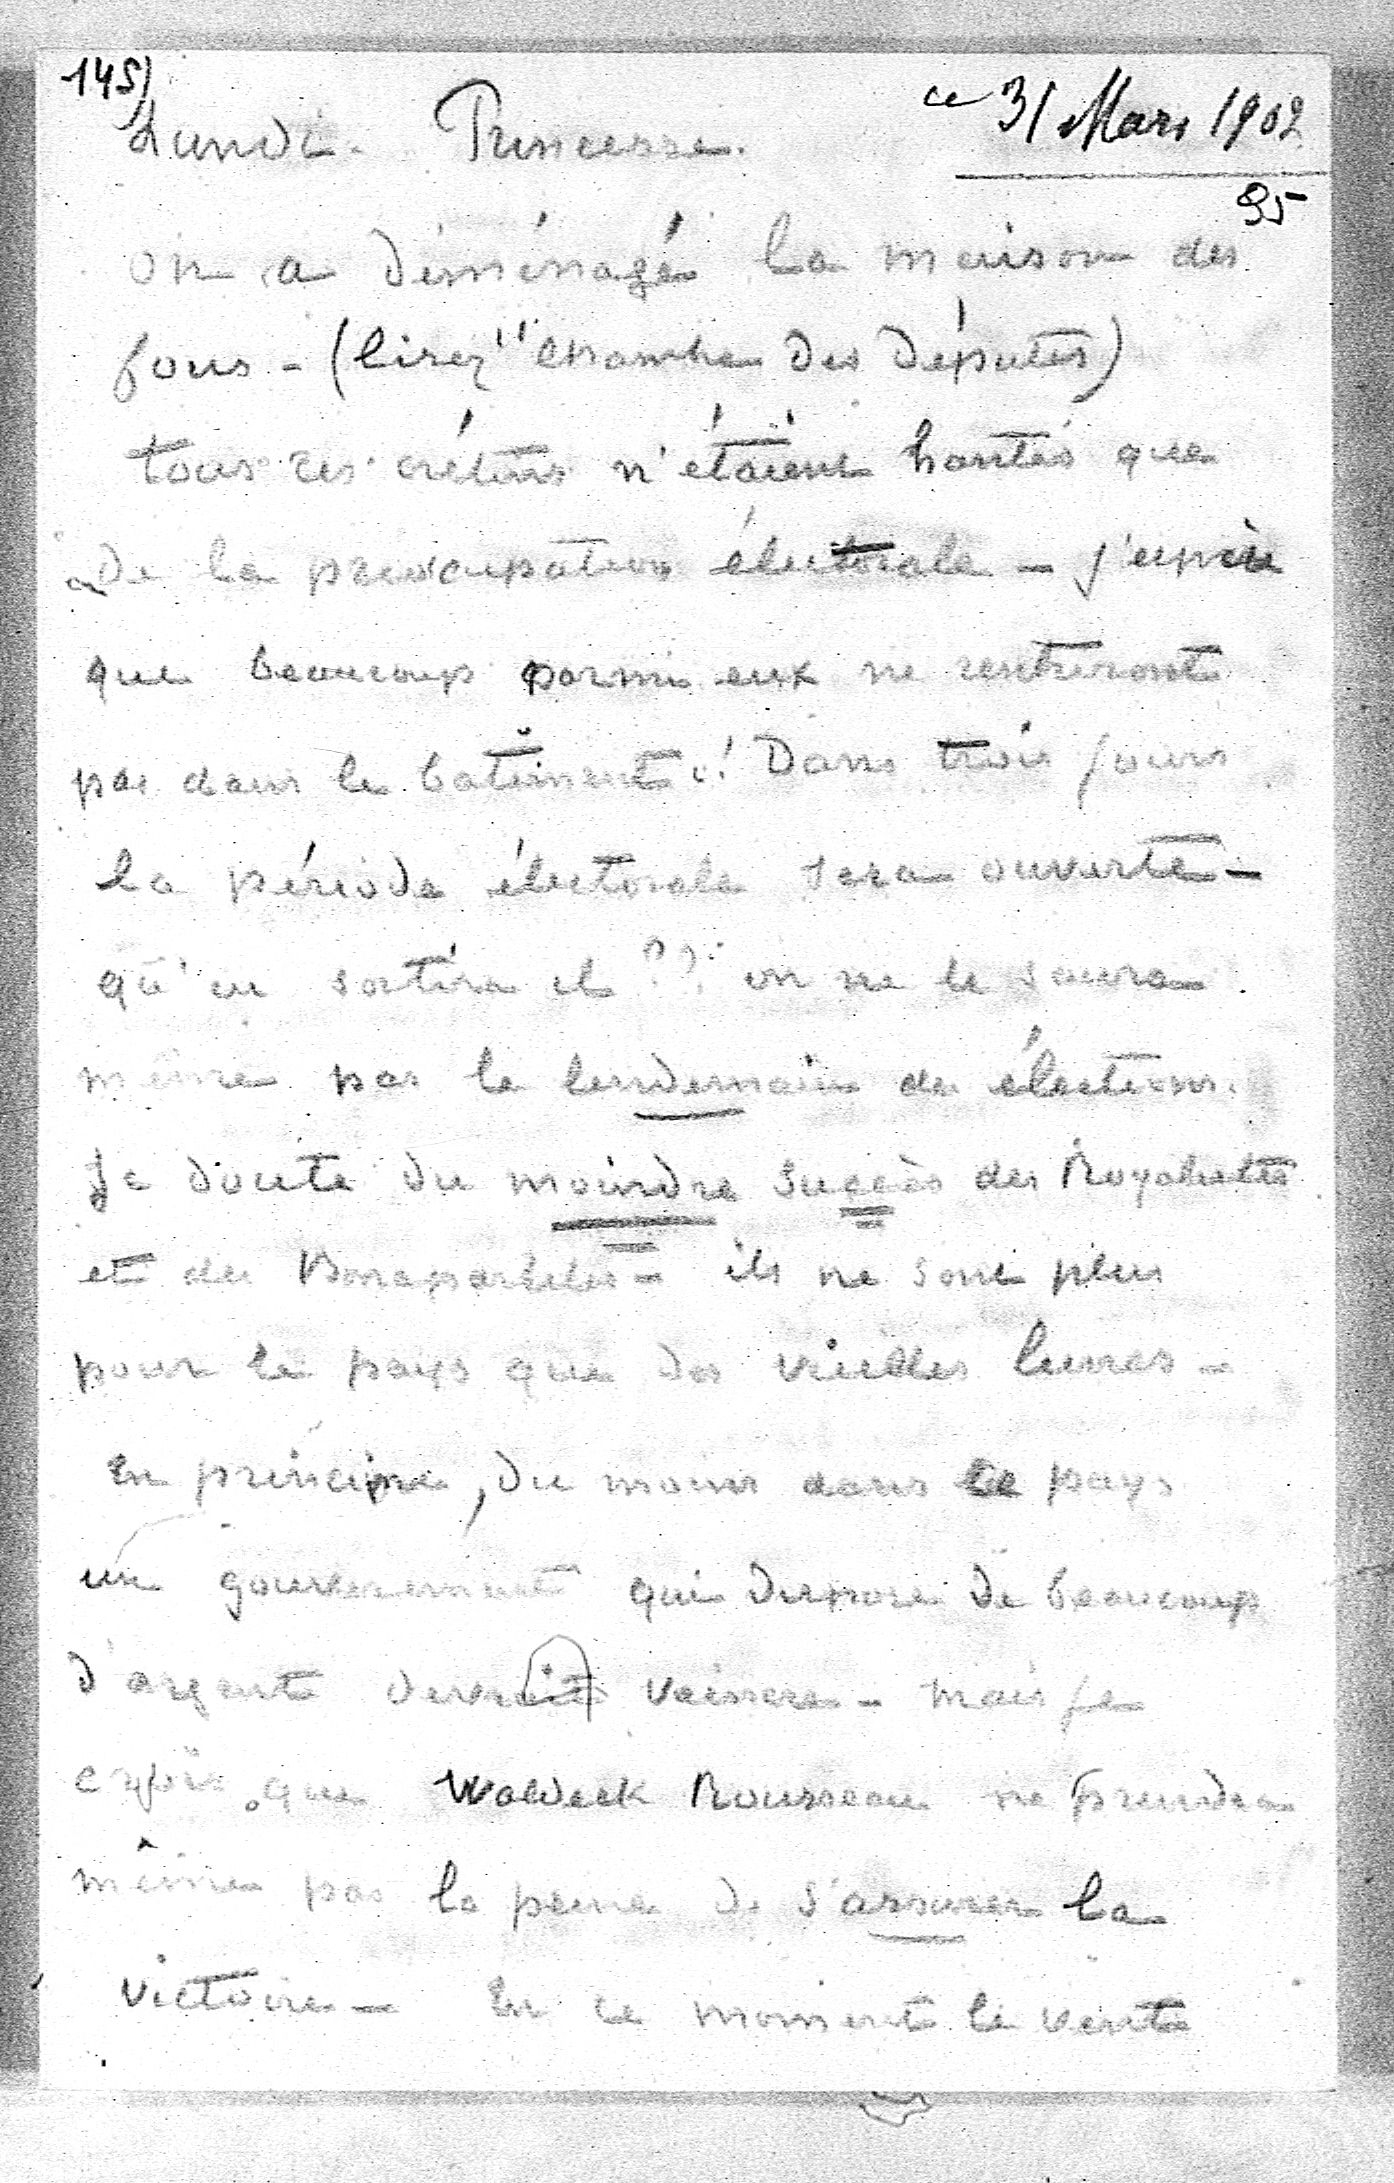 145)
ce 31 Mars 1902
Lundi. Princesse.
95
on a déménagé la maison des
fous - (lisez "chambre des Députés)
tous ces crétins n'étaient hantés que
de la préoccupation électorale - j'espère
que beaucoup parmi eux ne rentreront
pas dans le batiment..! Dans trois jours
la période électorale sera ouverte -
qu'en sortira il ?? on ne le saura
même pas le lendemain des élections.
Je doute du moindre succès des Royalistes
et des Bonapartistes - ils ne sont plus
pour le pays que des vieilles lunes -
En principe, du moins dans ce pays
un gouvernement qui dispose de beaucoup
d'argent devrait vaincre - mais je
crois que Waldeck Rousseau ne prendra
même pas la peine de s'assurer la
victoire - En ce moment le vent